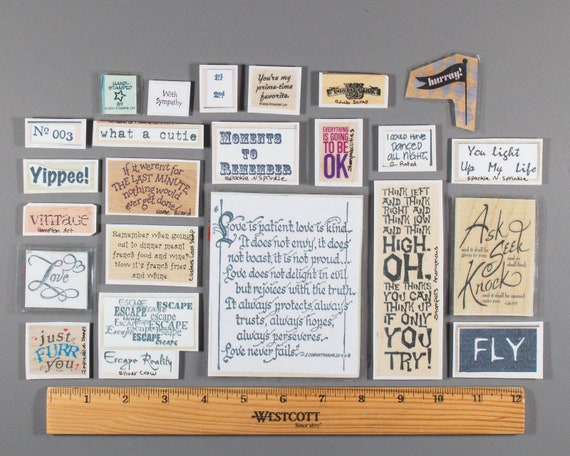 HAND-
STAMPED
BY
With
Sympathy
1st
2nd
You're my
prime-time
favorite.
hurray!
No 003
what a cutie
MOMENTS
TO
REMEMBER
Sparkle N Sprinkle
EVERYTHING
IS GOING
TO BE
OK
I COULD HAVE
DANCED
ALL NIGHT.
G. Rated
You Light
Up My Life
Sparkle N Sprinkle
Yippee!
If it weren't for
THE LAST MINUTE
nothing would
ever get done.
vintage
Hampton Art
Remember when going
out to dinner meant
french food and wine?
Now it's french fries
and wine.
Love is patient, love is kind.
It does not envy, it does
not boast, it is not proud...
Love does not delight in evil
but rejoices with the truth.
It always protects, always
trusts, always hopes,
always perseveres.
Love never fails.
THINK LEFT
AND THINK
RIGHT AND
THINK LOW
AND THINK
HIGH.
OH,
THE THINKS
YOU CAN
THINK UP
IF ONLY
YOU
TRY!
Ask
and it shall be
given to you,
Seek
and ye shall
find:
Knock
and it shall be opened
unto you.
Love
ESCAPE
ESCAPE
ESCAPE
escape
ESCAPE
ESCAPE
ESCAPE
Escape Reality
Silver Crow
just
FURR
you
FLY
1 2 3 4 5 6 7 8 9 10 11 12
WESTCOTT
Since 1872